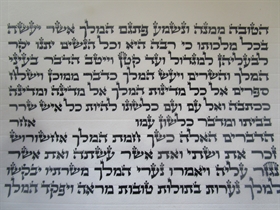 הטובה ממנה ונשמע פתגם המלך אשר יעשה
בכל מלכותו כי רבה היא וכל הנשים יתנו יקר
לבעליהן למגדול ועד קטן וייטב הדבר בעיני
המלך והשרים ויעש המלך כדבר ממוכן וישלח
ספרים אל כל מדינות המלך אל מדינה ומדינה
ככתבה ואל עם ועם כלשונו להיות כל איש שרר
בביתו ומדבר כלשון עמו אחר
הדברים האלה כשך חמת המלך אחשורוש
זכר את ושתי ואת אשר עשתה ואת אשר
נגזר עליה ויאמרו נערי המלך משרתיו יבקשו
למלך נערות בתולות טובות מראה ויפקד המלך